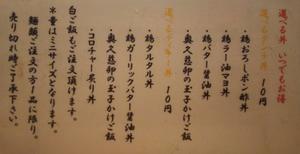 選べる丼 いつでもお得
選べるランチ丼 10円
・鶏おろしポン酢丼
・鶏ラー油マヨ丼
・鶏バター醤油丼
・奥久慈卵の玉子かけご飯
選べるディナー丼 10円
・鶏タルタル丼
・鶏ガーリックバター醤油丼
・奥久慈卵の玉子かけご飯
・コロチャー炙り丼
白ご飯もご注文頂けます。
＊量はミニサイズとなります。
麺類ご注文の方1品に限り。
売り切れ時ご了承下さい。